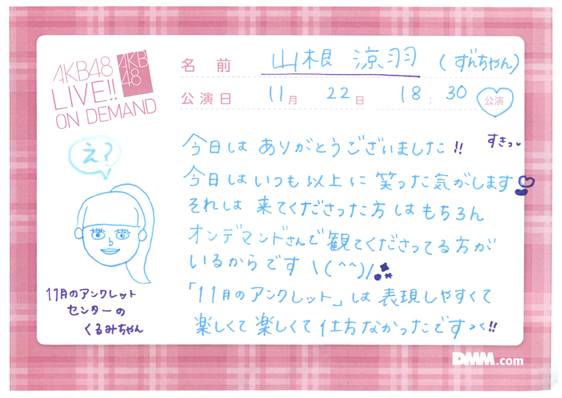 AKB48
LIVE!!
ON DEMAND
AKB
48
名前 山根 涼羽 (ずんちゃん)
公演日 11月 22日 18:30 公演
え?
今日は ありがとうございました!!
すきっ
今日はいつも以上に 笑った気がします
それは 来てくださった方 はもちろん
オンデマンドさんで 観てくださってる方が
いるからです \(^^)/
「11月のアンクレット」は 表現しやすくて
楽しくて 楽しくて 仕方なかったですっ!!
11月のアンクレット
センターの
くるみちゃん
DMM.com